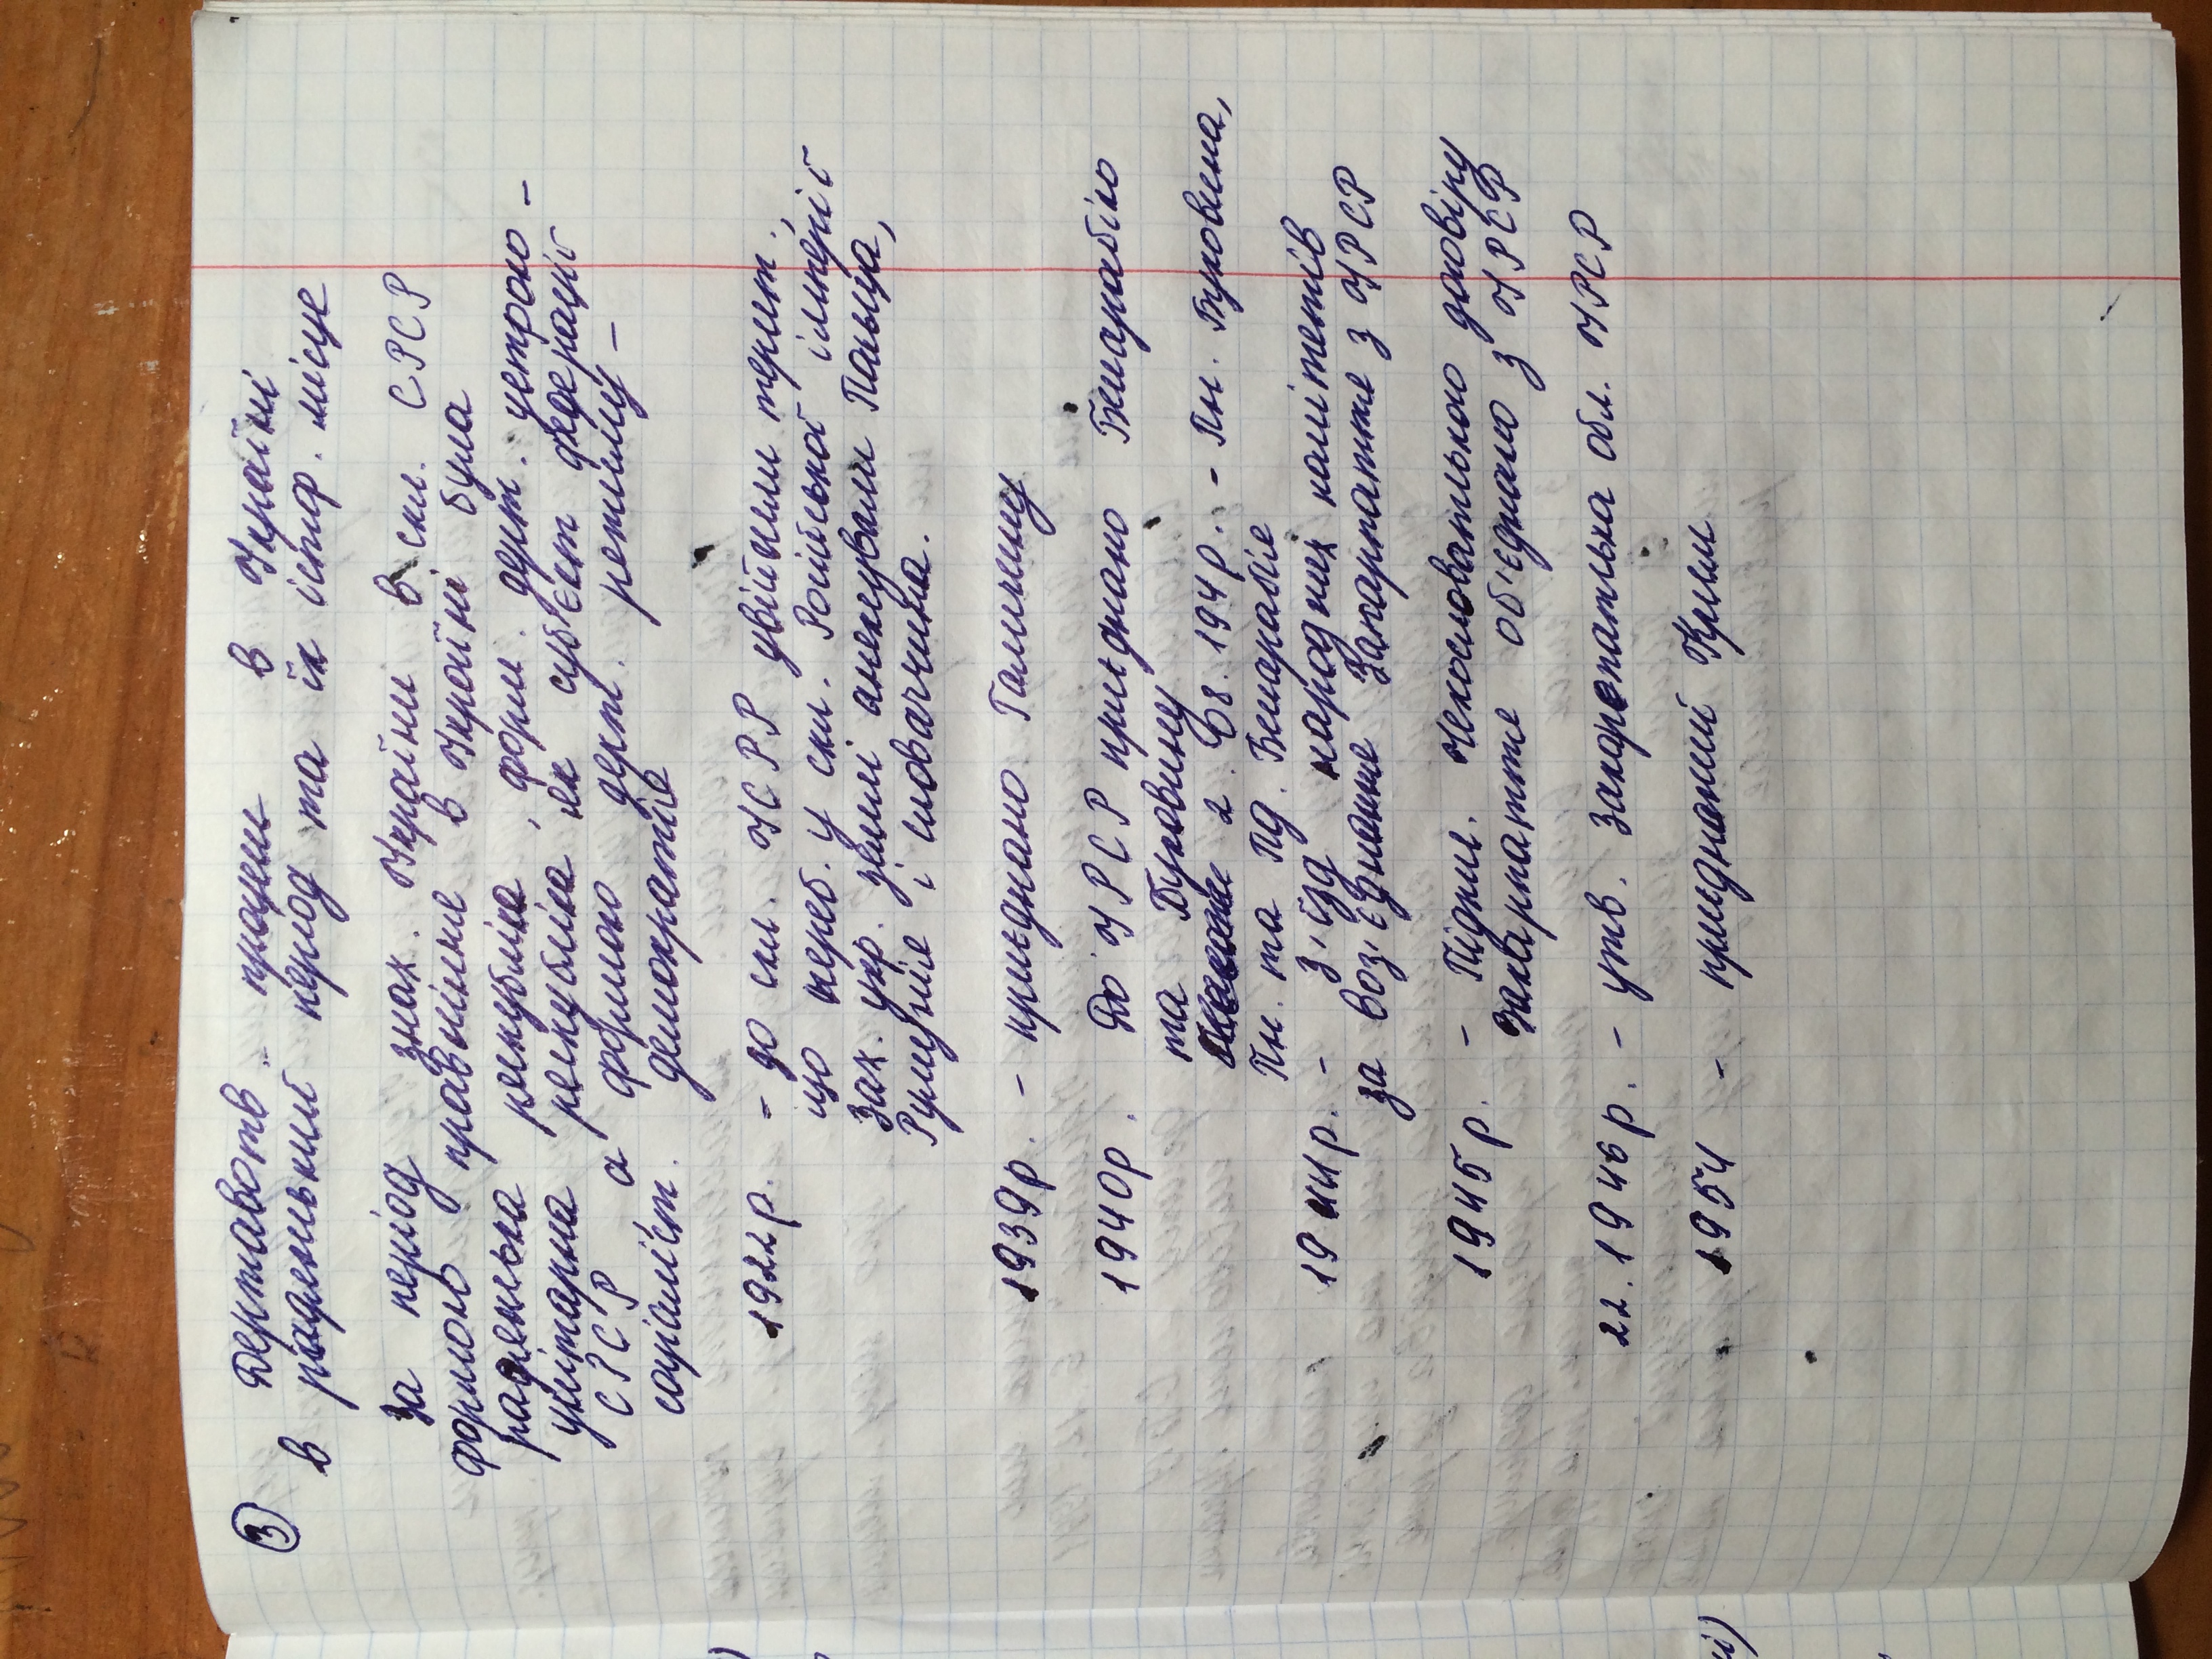 3 Державотв. процеси в Україні
в радянський період та їх істор. місце
За період знах. України в скл. СРСР
формою правління в Україні була
радянська республіка, форм. держ. устрою -
унітарна республіка як суб'єкт федерації
СРСР, а формою держ. режиму -
соціаліст. демократія
1922р. - до скл. УСРР увійшли терит.,
що переб. у скл. Російської імперії
Зах. укр. землі анексували Польща,
Румунія і Словаччина.
1939р. - приєднано Галичину
1940р. До УРСР приєднано Бессарабію
та Буковину
2.08.194р. - Пн. Буковина,
Пн. та Пд. Бессарабія
1944р. - З'їзд народних комітетів
за возз'єднання Закарпаття з УРСР
1945р. - Підпис. Чехословатською договіру
Закарпаття об'єднано з УРСР
22.1946р. - утв. Закарпатська обл. УРСР
1954 - приєднаний Крим